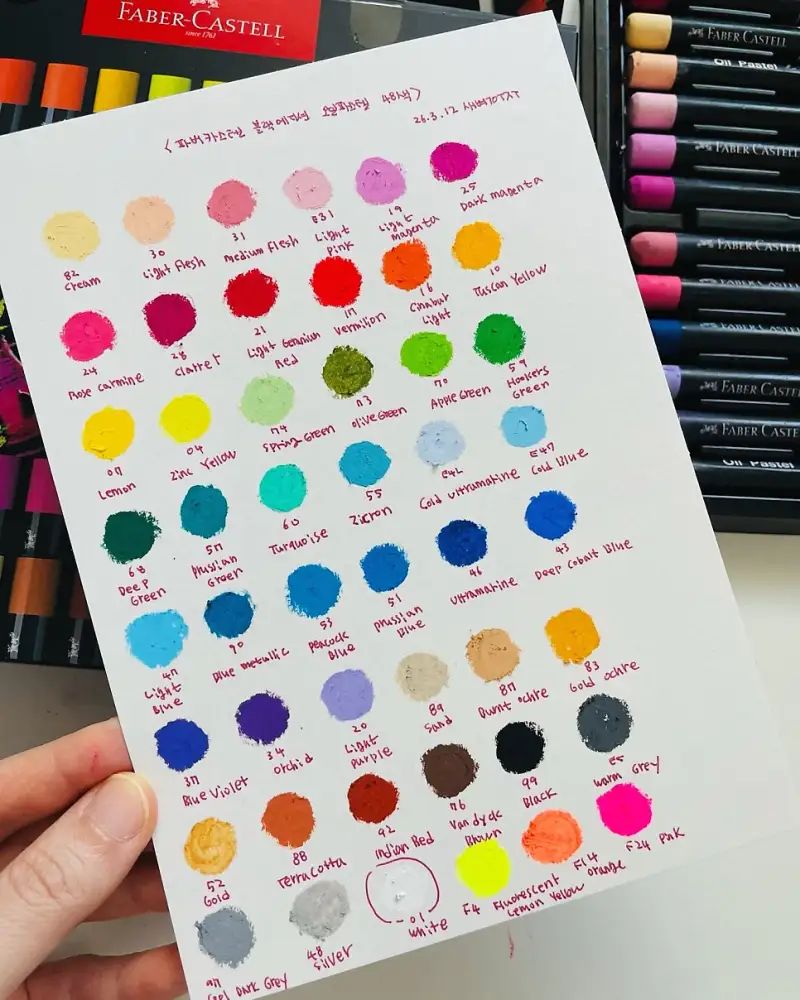 FABER-CASTELL
since 1761
< 파버카스텔 블랙에디션 오일파스텔 48색 >
26.3.12
82 Cream
30 Light Flesh
31 Medium Flesh
E31 Light Pink
19 Light Magenta
25 Dark magenta
24 Rose carmine
28 Claret
21 Light Geranium Red
17 Vermilion
16 Cinabar Light
10 Tuscan Yellow
07 Lemon
04 Zinc Yellow
74 Spring Green
73 Olive Green
70 Apple Green
59 Hookers Green
68 Deep Green
57 Prussian Green
60 Turquoise
55 Zicron
E42 Cold Ultramarine
E47 Cold Blue
47 Light Blue
90 Blue metallic
53 Peacock Blue
51 Prussian Blue
46 Ultramarine
43 Deep Cobalt Blue
37 Blue Violet
34 Orchid
20 Light purple
89 Sand
87 Burnt ochre
83 Gold ochre
52 Gold
88 Terracotta
92 Indian Red
76 Van dyck Brown
99 Black
E5 Warm Grey
97 Dark Grey
48 Silver
01 White
F4 Fluorescent Lemon Yellow
F14 Orange
F24 Pink
FABER CASTELL
Oil Pastel
FABER CASTELL
FABER CASTELL
FABER CASTELL
FABER CASTELL
FABER CASTELL
FABER CASTELL
Oil Pastel